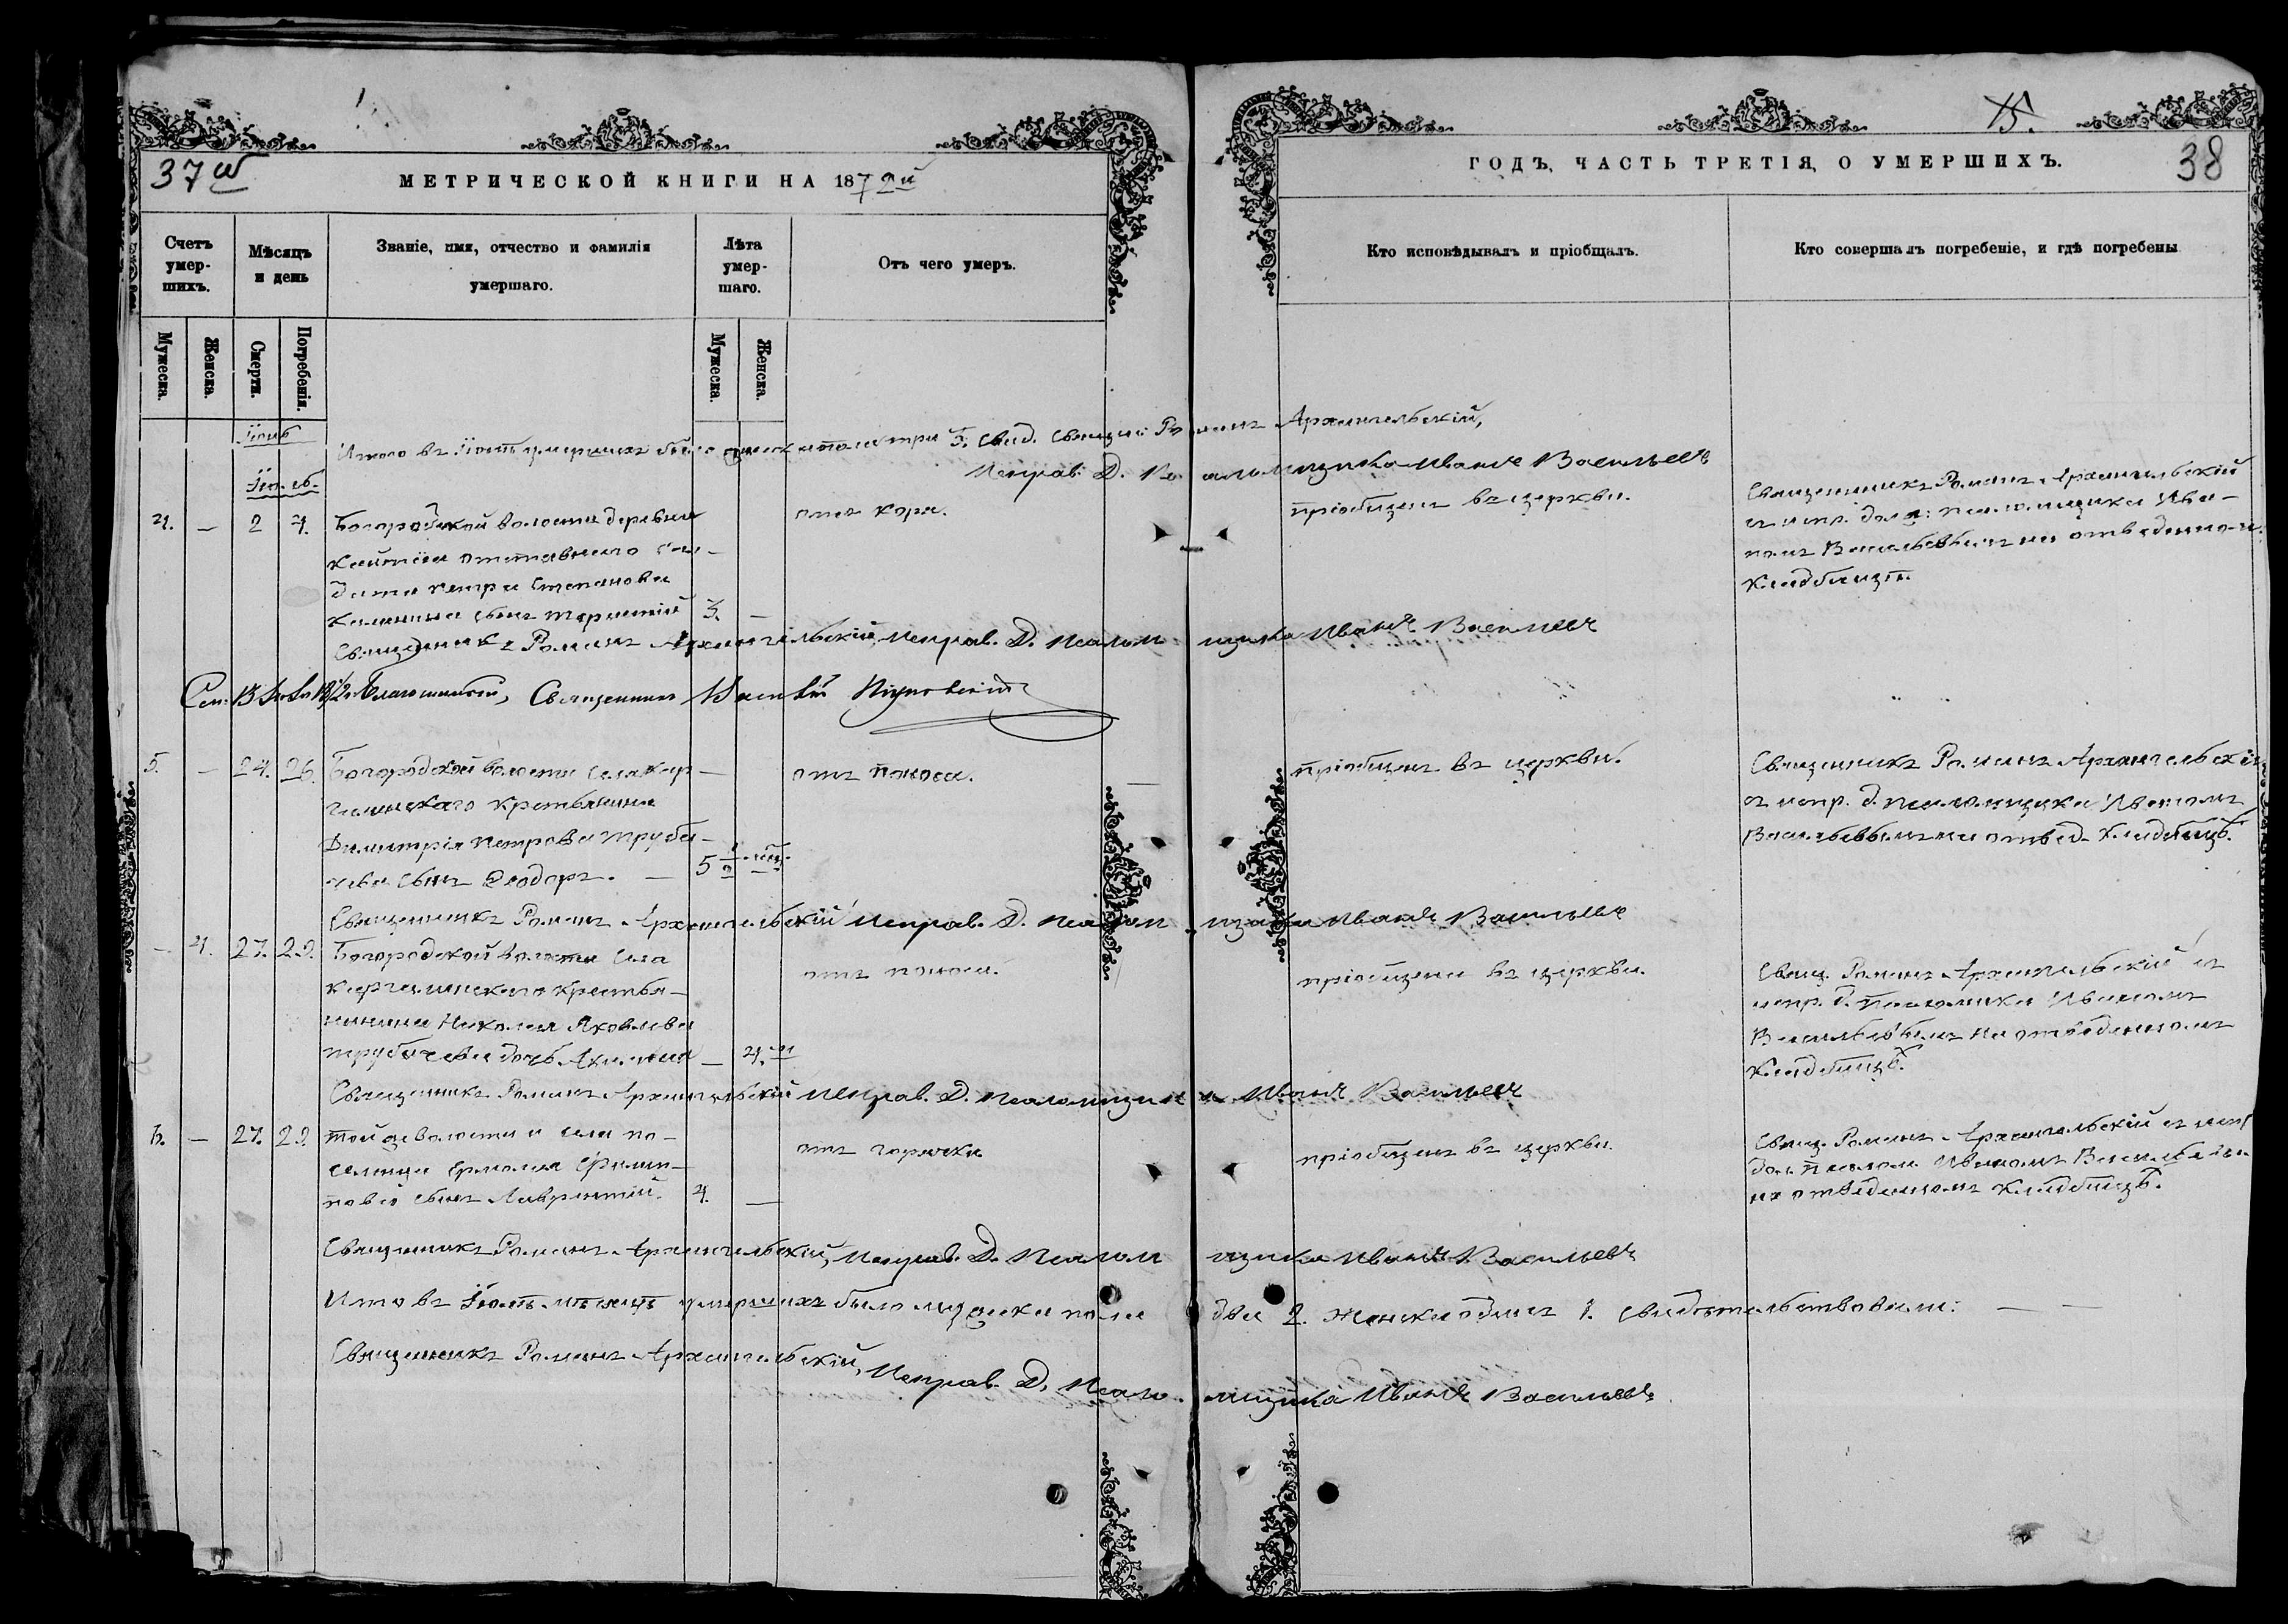 37 об
МЕТРИЧЕСКОЙ КНИГИ НА 1872й
Счетъ умер-шихъ.
Мѣсяцъ и день
Званіе, имя, отчество и фамилія умершаго.
Лѣта умер-шаго.
Отъ чего умеръ.
Мужеска.
Женска.
Смерти.
Погребенія.
Мужеска.
Женска.
15.
ГОДЪ, ЧАСТЬ ТРЕТІЯ, О УМЕРШИХЪ.
38
Кто исповѣдывалъ и пріобщалъ.
Кто совершалъ погребеніе, и гдѣ погребены
Итого въ умершихъ было пола три Священ Романъ Архангельскій,
Исправ. Д. Псаломщика Иванъ Васильевъ
4. — 2 4. Богородской волости деревни
отставного сол-
дата Петра Степанова
Калинина сынъ Терентій 3. —
отъ кори.
пріобщенъ въ церкви.
Священникъ Романъ Архангельскій
съ испр. долж: псаломщика Ива-
номъ Васильевымъ на отведенном
кладбищѣ.
Священникъ Романъ Архангельскій, Исправ. Д. Псаломщика Иванъ Васильевъ
Благочинный, Священникъ
5. — 24. 26. Богородской волости села Кар-
галинскаго крестьянина
Димитрія Петрова Труба-
чева сынъ Ѳеодоръ. —
отъ поноса.
пріобщенъ въ церкви.
Священникъ Романъ Архангельскій
съ испр. д. псаломщика Иваномъ
Васильевымъ на отвед. кладбищѣ.
Священникъ Романъ Архангельскій Исправ. Д. Псаломщика Иванъ Васильевъ
— 4. 27. 29. Богородской волости села
Каргалинскаго крестья-
нина Николая Яковлева
Трубачева дочь —
отъ поноса.
пріобщена въ церкви.
Свящ. Романъ Архангельскій съ
испр. д. Псаломщика Иваномъ
Васильевымъ на отведенномъ
кладбищѣ.
Священникъ Романъ Архангельскій Исправ. Д. Псаломщика Иванъ Васильевъ
6. — 27. 29. той же волости и села по-
селенца Ермолая Филип-
пова сынъ Лаврентій. 4. —
отъ горячки
пріобщенъ въ церкви.
Свящ. Романъ Архангельскій съ испр
дол. псалом. Иваномъ Васильевым
на отведенномъ кладбищѣ.
Священникъ Романъ Архангельскій, Исправ. Д. Псаломщика Иванъ Васильевъ
Итого въ мѣсяцѣ умершихъ было мужеска пола два 2. женска одинъ 1. свидѣтельствовали: — —
Священникъ Романъ Архангельскій, Исправ. Д. Псаломщика Иванъ Васильевъ